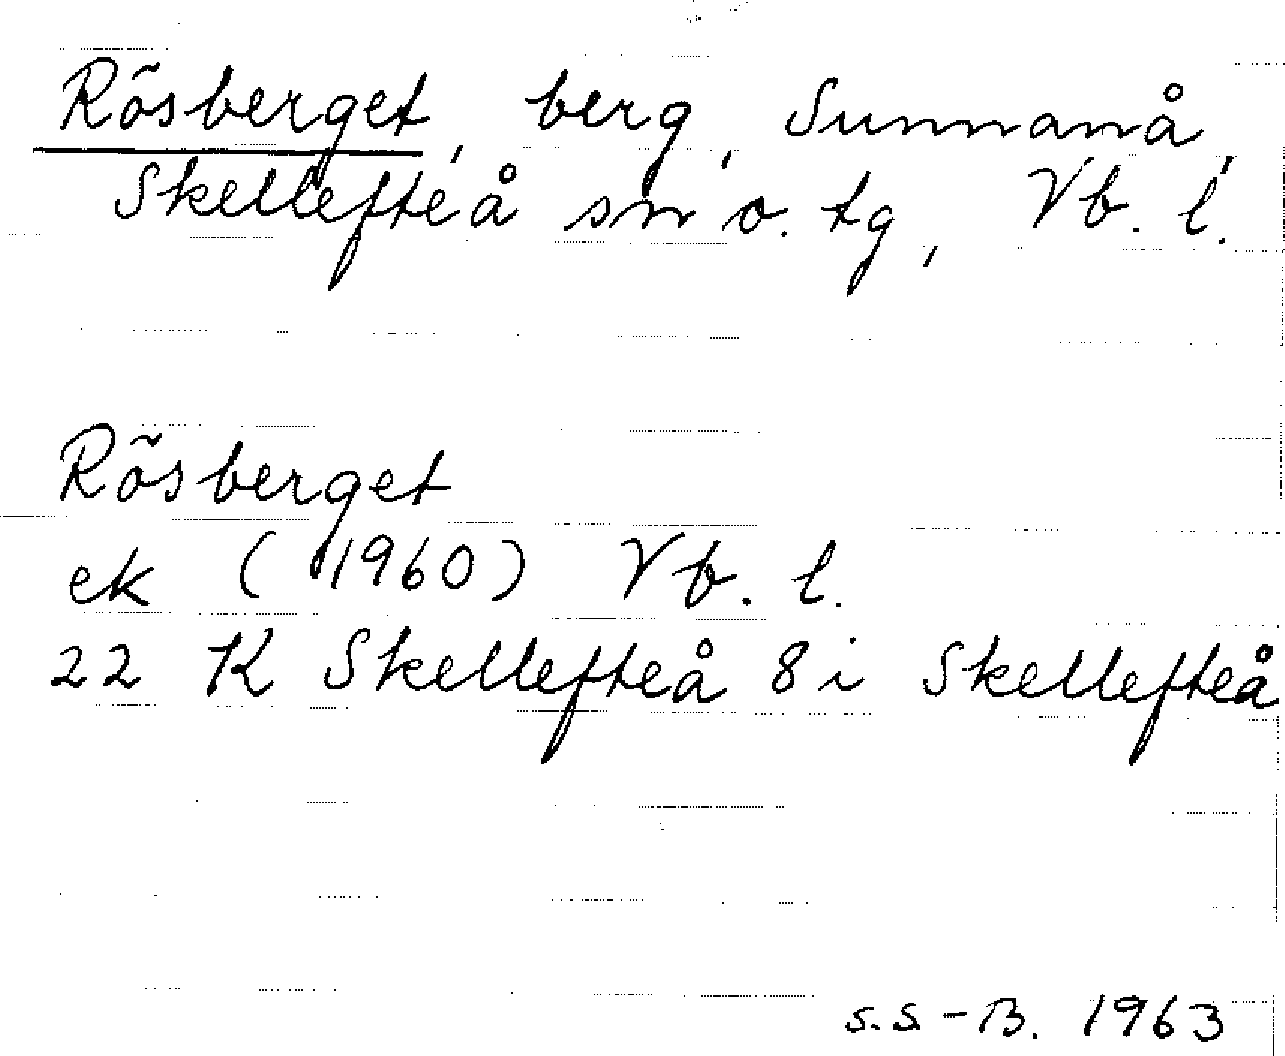 Rösberget, berg, Sunnanå,
Skellefteå sn o. tg, Vb. l.
Rösberget
ek (1960) Vb. l.
22 K Skellefteå 8 i Skellefteå
S.S-B. 1963